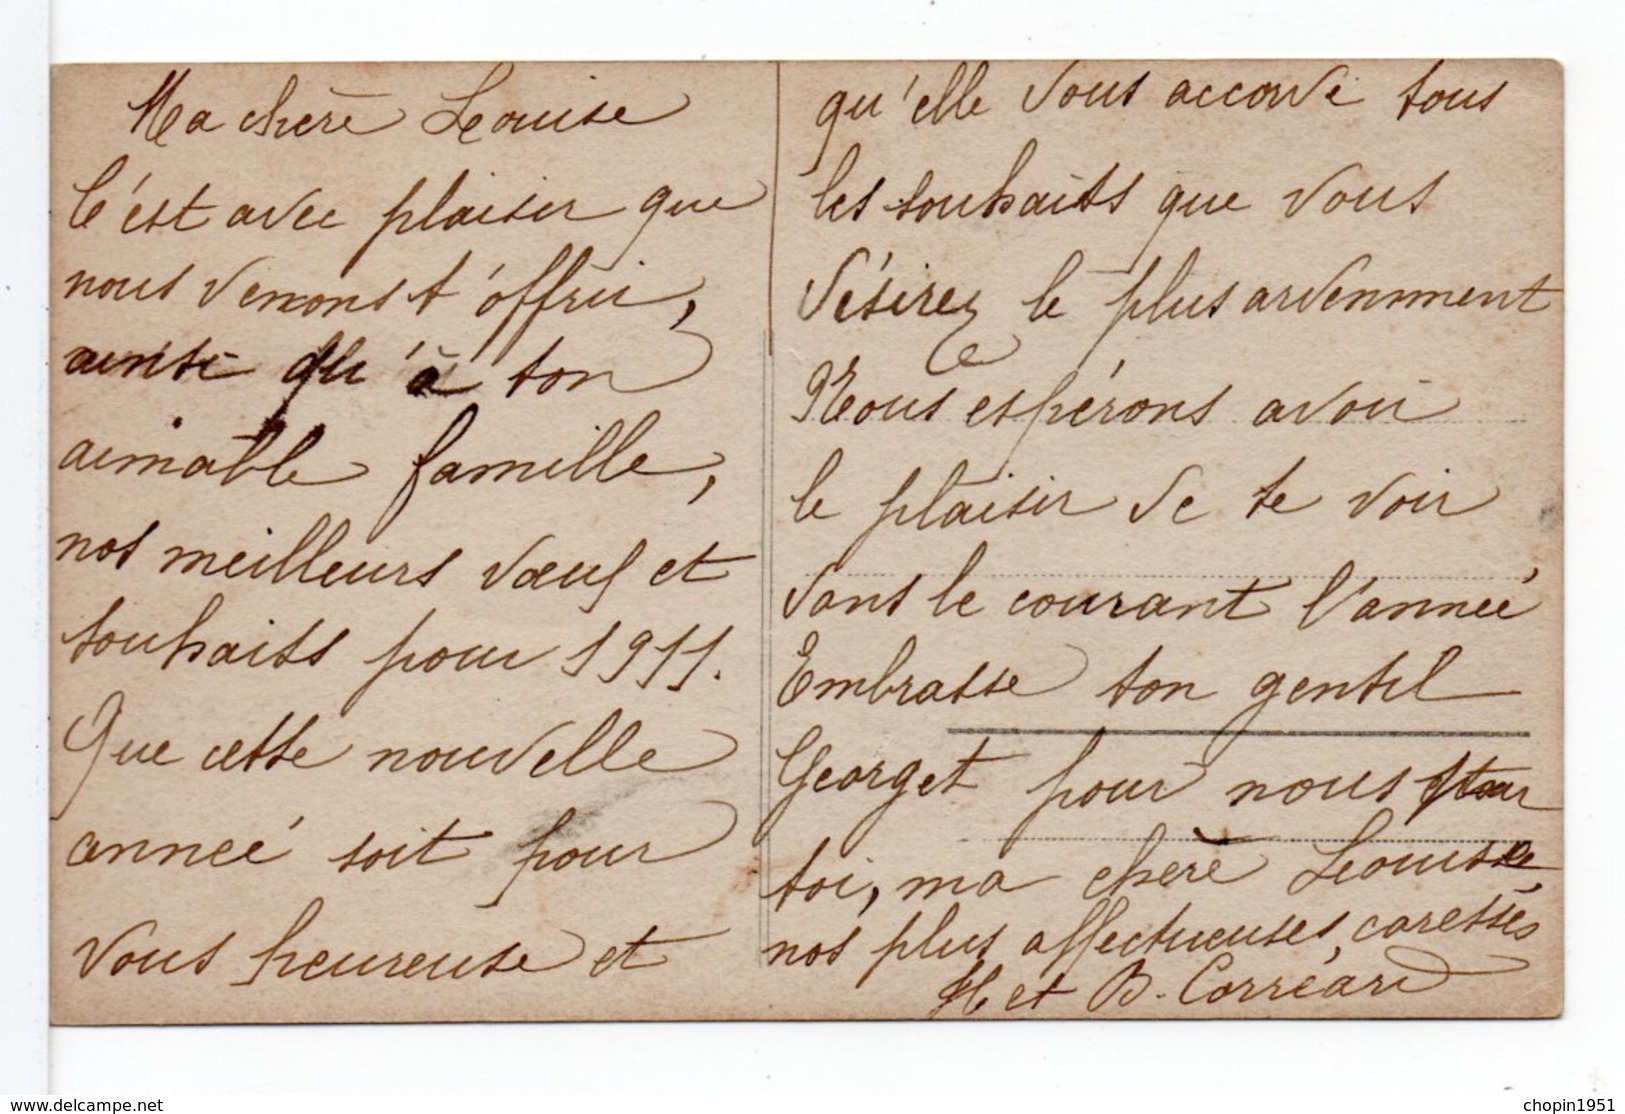 Ma chère Louise
C'est avec plaisir que
nous venons t'offrir,
ainsi qu'à ton
aimable famille,
nos meilleurs vœux et
souhaits pour 1911.
Que cette nouvelle
année soit pour
vous heureuse et
qu'elle vous accorde tous
les souhaits que vous
désirez le plus ardemment
Nous espérons avoir
le plaisir de te voir
dans le courant l'année
Embrasse ton gentil
Georget pour nous
toi, ma chère Louise,
nos plus affectueuses caresses
H et B. Corréard
www.delcampe.net
chopin1951